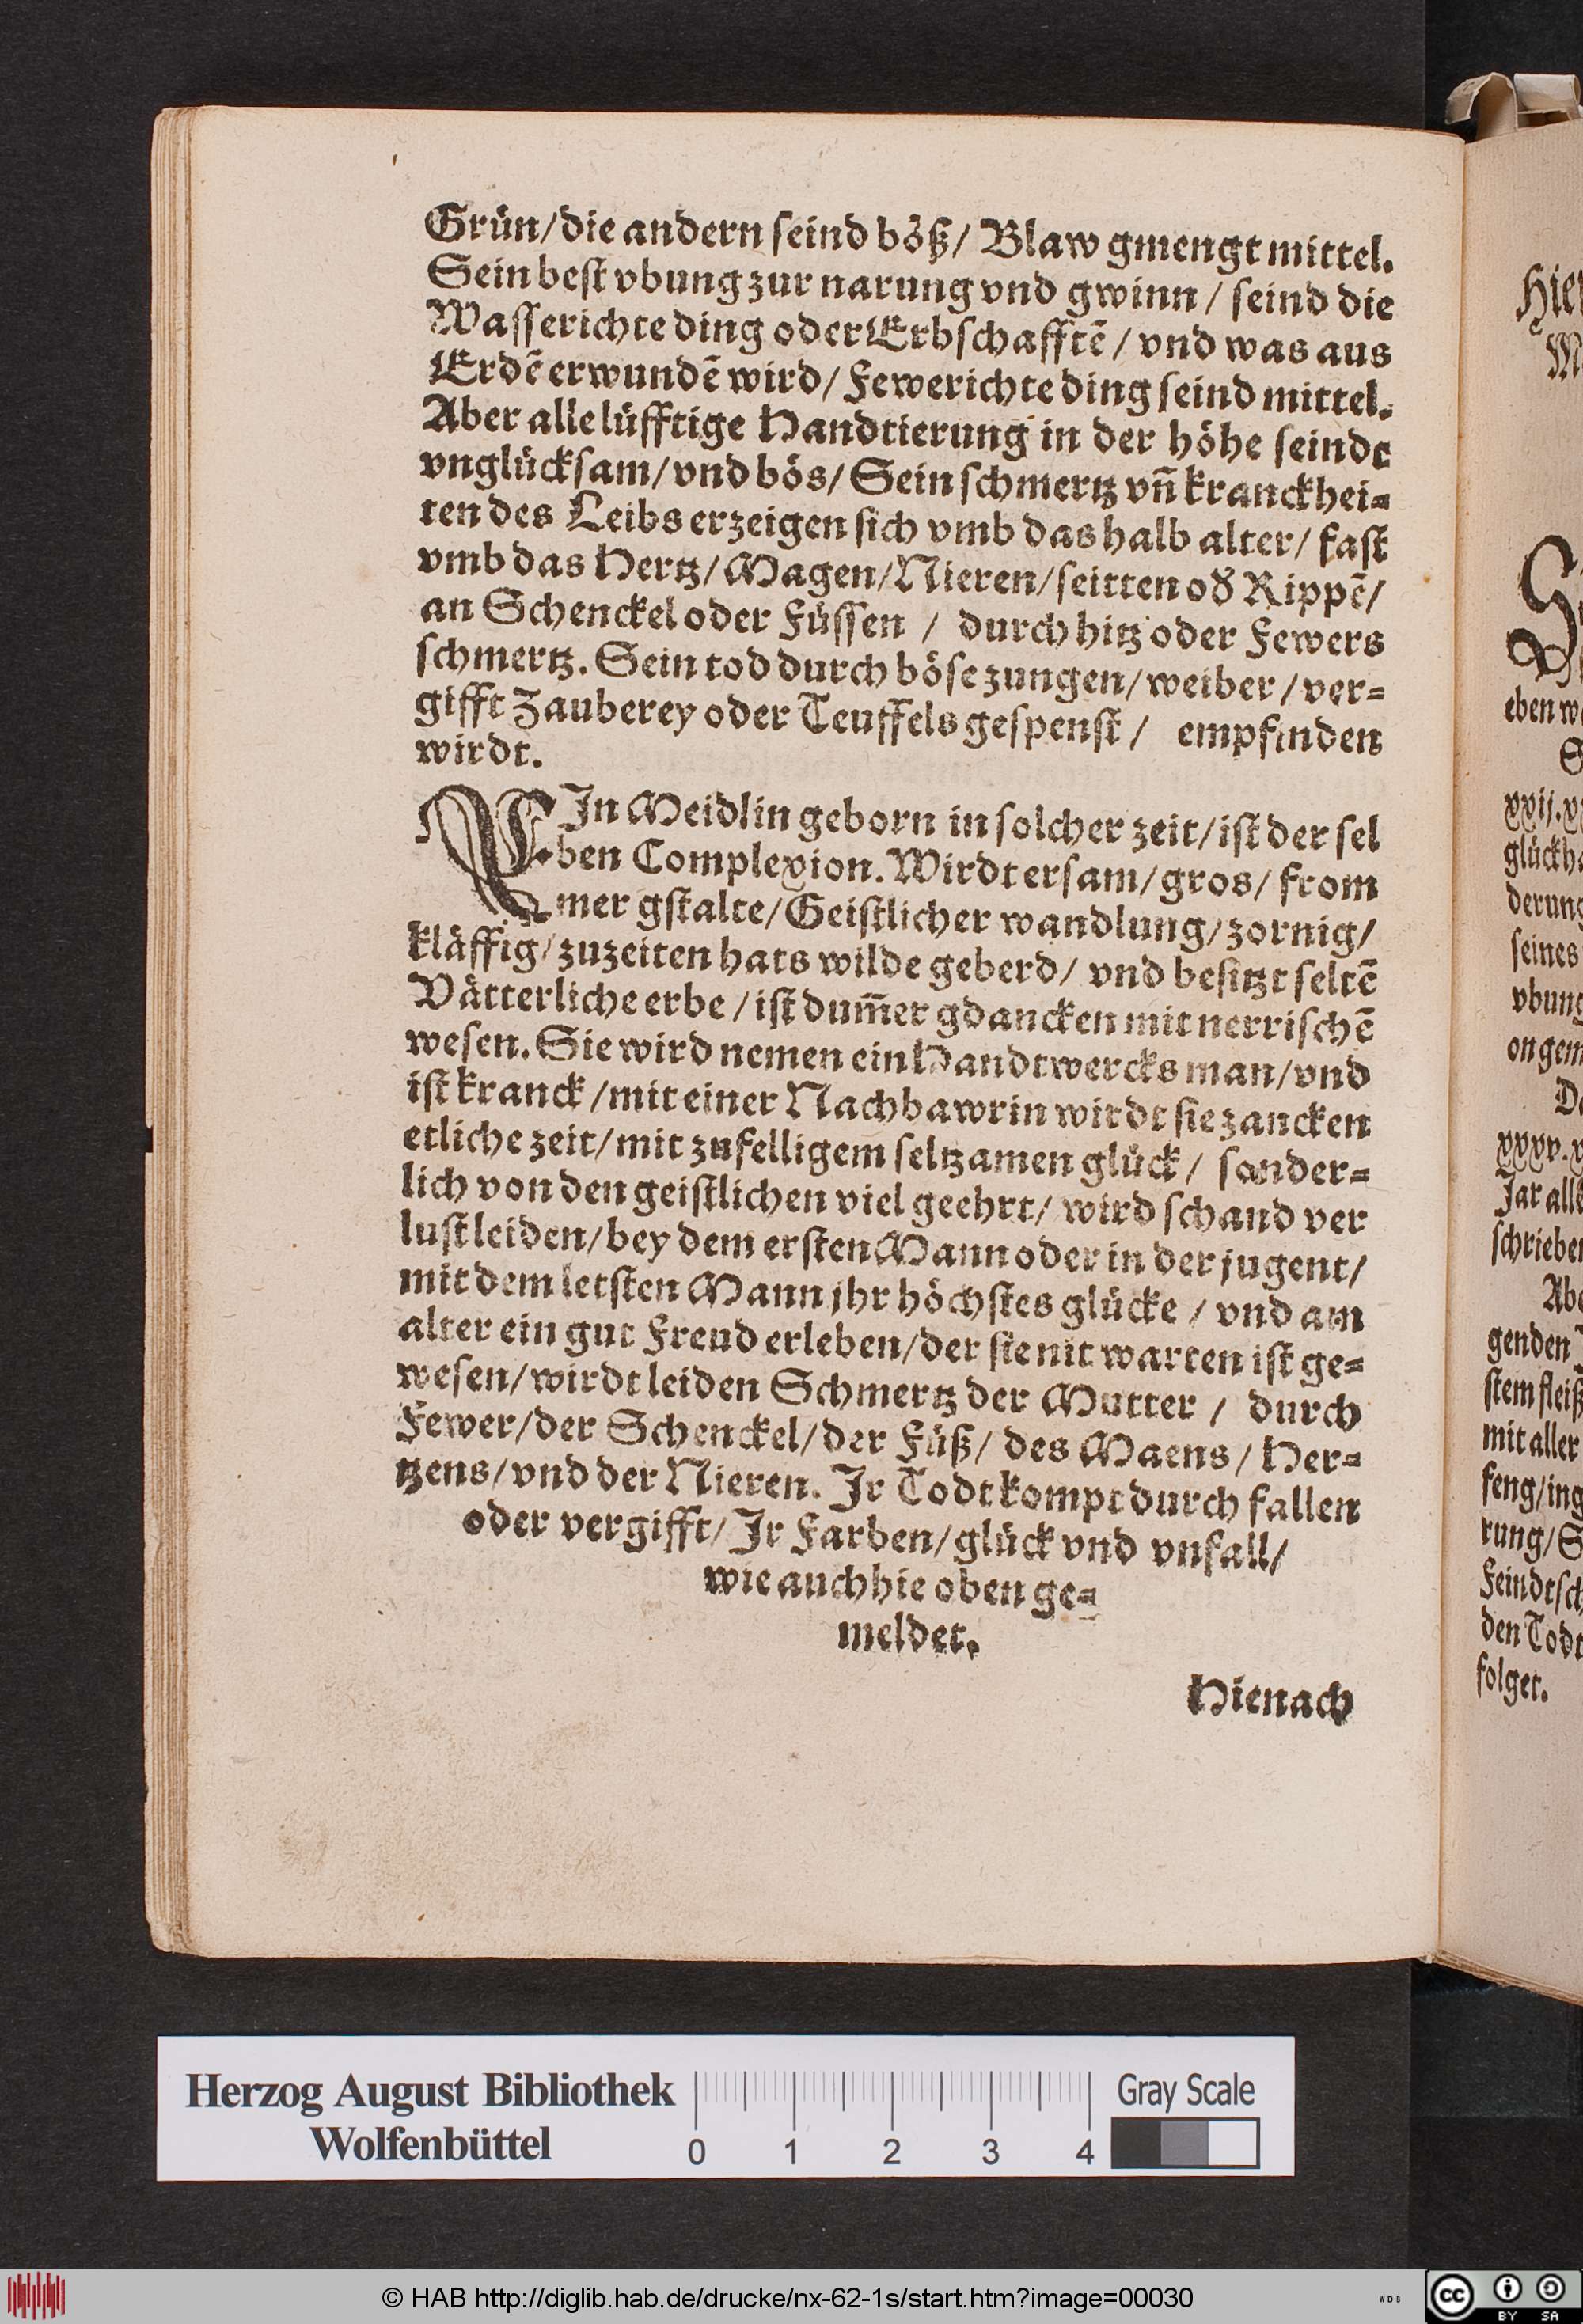 Grün/die andern seind böß/ Blaw gmengt mittel.
Sein best vbung zur narung vnd gwinn / seind die
Wasserichte ding oder Erbschafftẽ / vnd was aus
Erdẽ erwundẽ wird/ Fewerichte ding seind mittel.
Aber alle lüfftige Handtierung in der höhe seindt
vnglücksam/vnd bös/ Sein schmertz vñ kranckhei=
ten des Leibs erzeigen sich vmb das halb alter/ fast
vmb das Hertz/Magen/Nieren/seitten od̕ Rippẽ/
an Schenckel oder Füssen / durch hitz oder Fewers
schmertz. Sein tod durch böse zungen/weiber /ver=
gifft Zauberey oder Teuffels gespenst / empfinden
wirdt.
EIn Meidlin geborn in solcher zeit/ist der sel
ben Complexion. Wirdt ersam/gros/ from
mer gstalte/Geistlicher wandlung/zornig/
kläffig/zuzeiten hats wilde geberd/ vnd besitzt seltẽ
Vätterliche erbe /ist dum̃er gdancken mit nerrischẽ
wesen. Sie wird nemen ein Handtwercks man/vnd
ist kranck /mit einer Nachbawrin wirdt sie zancken
etliche zeit/mit zufelligem seltzamen glück/ sonder=
lich von den geistlichen viel geehrt/ wird schand ver
lust leiden/bey dem ersten Mann oder in der jugent/
mit dem letsten Mann jhr höchstes glücke / vnd am
alter ein gut Freud erleben/der sie nit warten ist ge=
wesen/wirdt leiden Schmertz der Mutter / durch
Fewer/der Schenckel/der Füß/ des Maens / Her=
tzens/vnd der Nieren. Ir Todt kompt durch fallen
oder vergifft/ Ir Farben/glück vnd vnfall/
wie auch hie oben ge=
meldet.
Hienach
eben
xxij.
derung
seines
vbung
on gem
xxxv.
Jar alle
schrieben
genden
stem fleiß
mit aller
feng/ing
rung/S
Feindtsch
den Todt
folget.
Herzog August Bibliothek
Wolfenbüttel
0 1 2 3 4
Gray Scale
© HAB http://diglib.hab.de/drucke/nx-62-1s/start.htm?image=00030
WDB
cc BY SA